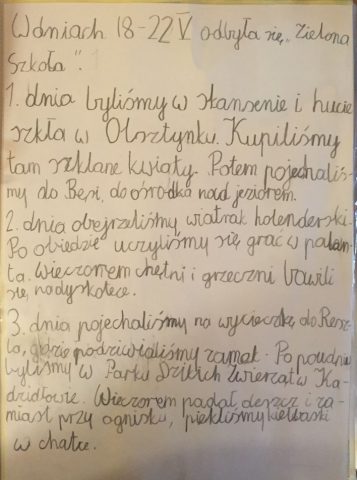 W dniach 18-22 V odbyła się „Zielona
Szkoła".
1. dnia byliśmy w skansenie i hucie
szkła w Olsztynku. Kupiliśmy
tam szklane kwiaty. Potem pojechaliś-
my do Besi, do ośrodka nad jeziorem.
2. dnia obejrzeliśmy wiatrak holenderski.
Po obiedzie uczyliśmy się grać w palan-
ta. Wieczorem chętni i grzeczni bawili
się na dyskotece.
3. dnia pojechaliśmy na wycieczkę do Resz-
la, gdzie podziwialiśmy zamek. Po południu
byliśmy w Parku Dzikich Zwierząt w Ka-
dzidłowie. Wieczorem padał deszcz i za-
miast przy ognisku, piekliśmy kiełbaski
w chatce.